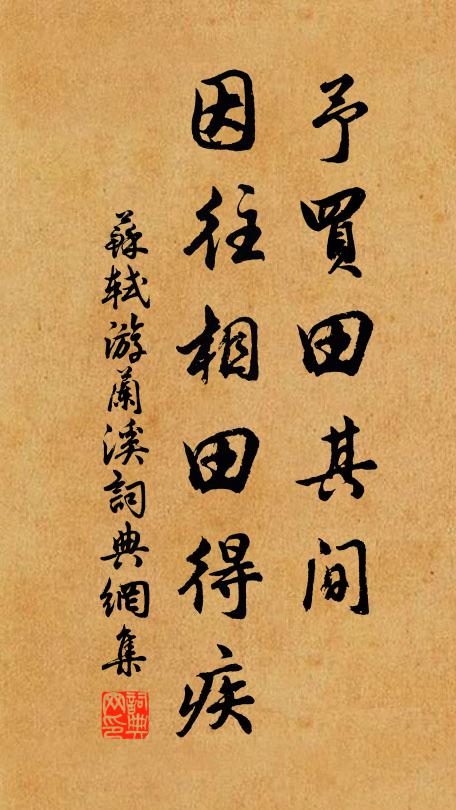 予買田其間
因往相田得疾
蘇軾游蘭溪詞典網集
詞典
网印